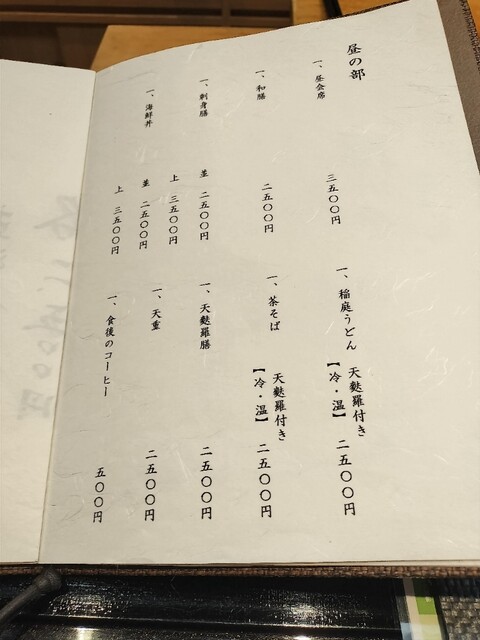 昼の部
一、昼会席 三五〇〇円
一、和膳 二五〇〇円
一、刺身膳 並 二五〇〇円
上 三五〇〇円
一、海鮮丼 並 二五〇〇円
上 三五〇〇円
一、稲庭うどん 天麩羅付き
【冷・温】 二五〇〇円
一、茶そば 天麩羅付き
【冷・温】 二五〇〇円
一、天麩羅膳 二五〇〇円
一、天重 二五〇〇円
一、食後のコーヒー 五〇〇円